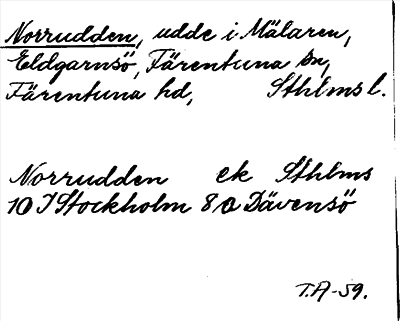 Norrudden, udde i Mälaren,
Eldgarnsö, Färentuna sn,
Färentuna hd, Sthlms l.
Norrudden ek Sthlms
10 I Stockholm 8 a Dävensö
T.A-59.